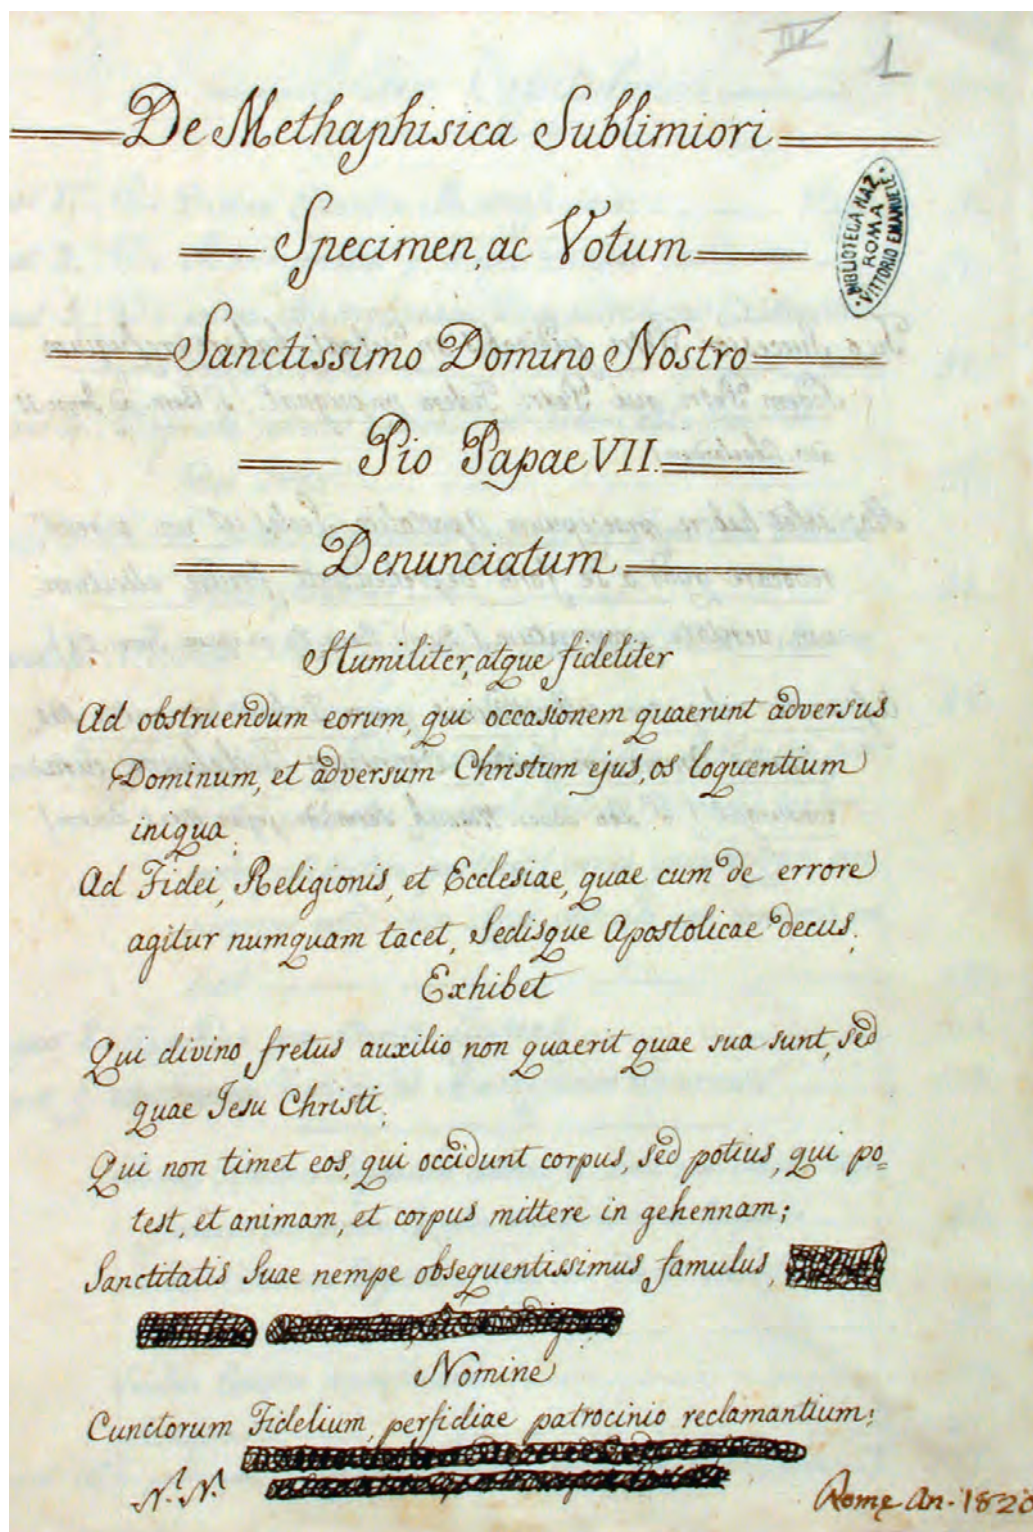 III 1
De Methaphisica Sublimiori
Specimen, ac Votum
BIBLIOTECA NAZ.
ROMA
VITTORIO EMANUELE
Sanctissimo Domino Nostro
Pio Papae VII.
Denunciatum
Humiliter, atque fideliter
Ad obstruendum eorum, qui occasionem quaerunt adversus
Dominum, et adversum Christum ejus, os loquentium
iniqua;
Ad Fidei, Religionis, et Ecclesiae, quae cum de errore
agitur numquam tacet, Sedisque Apostolicae decus;
Exhibet
Qui divino fretus auxilio non quaerit quae sua sunt, sed
quae Jesu Christi;
Qui non timet eos, qui occidunt corpus, sed potius, qui po=
test, et animam, et corpus mittere in gehennam;
Sanctitatis Suae nempe obsequentissimus famulus,
Nomine
Cunctorum Fidelium, perfidiae patrocinio reclamantium;
N. N.
Romę An. 1820